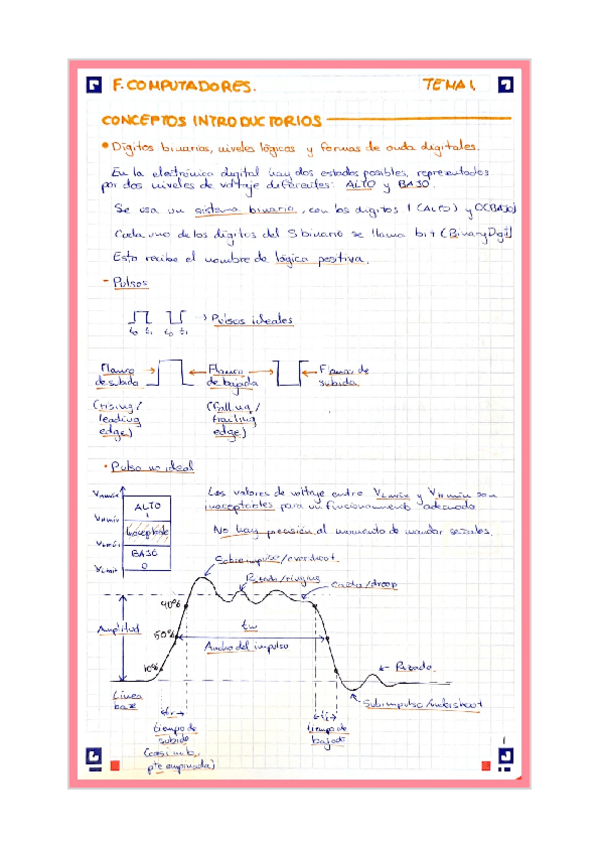 F. COMPUTADORES. TEMA 1.
CONCEPTOS INTRODUCTORIOS
• Dígitos binarios, niveles lógicos y formas de onda digitales.
En la electrónica digital hay dos estados posibles, representados
por dos niveles de voltaje diferentes: ALTO y BAJO.
Se usa un sistema binario, con los dígitos 1 (ALTO) y 0 (BAJO)
Cada uno de los dígitos del S binario se llama bit (Binary Digit)
Esto recibe el nombre de lógica positiva.
- Pulsos
t0 t1 t0 t1 → Pulsos ideales
Flanco de subida
(rising/
leading
edge)
Flanco de bajada
(falling/
trailing
edge)
Flanco de subida
• Pulso no ideal
VHmáx
ALTO
1
VHmín
Inaceptable
VLmáx
BAJO
0
VLmín
Los valores de voltaje entre VLmáx y VHmín son
inaceptables para un funcionamiento adecuado
No hay precisión al momento de mandar señales.
Sobreimpulso/overshoot
Rizado/ringing
Caída/droop
90%
Amplitud
50%
tw
Ancho del impulso
10%
Rizado.
Línea
base
Subimpulso/undershoot
tr
tiempo de
subida
tf
tiempo de
bajada
pte empinada)
1